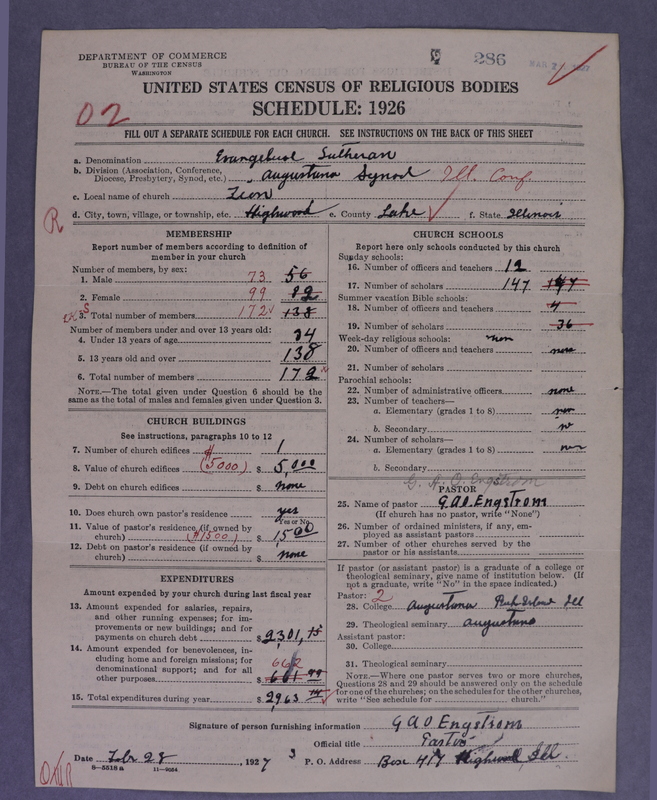 DEPARTMENT OF COMMERCE
BUREAU OF THE CENSUS
WASHINGTON
286
UNITED STATES CENSUS OF RELIGIOUS BODIES
SCHEDULE: 1926
02
FILL OUT A SEPARATE SCHEDULE FOR EACH CHURCH. SEE INSTRUCTIONS ON THE BACK OF THIS SHEET
a. Denomination Evangelical Lutheran
b. Division (Association, Conference, Diocese, Presbytery, Synod, etc.) Augustana Synod Ill. Conf
c. Local name of church Zion
d. City, town, village, or township, etc. Highwood e. County Lake f. State Illinois
R
MEMBERSHIP
Report number of members according to definition of member in your church
Number of members, by sex:
1. Male 73 56
2. Female 99 82
3. Total number of members 172 138
Number of members under and over 13 years old:
4. Under 13 years of age 34
5. 13 years old and over 138
6. Total number of members 172
NOTE.—The total given under Question 6 should be the same as the total of males and females given under Question 3.
CHURCH BUILDINGS
See instructions, paragraphs 10 to 12
7. Number of church edifices 1
8. Value of church edifices ($5000) $ 5,000
9. Debt on church edifices $ none
10. Does church own pastor's residence yes
(Yes or No)
11. Value of pastor's residence (if owned by church) ($1500) $ 1500
12. Debt on pastor's residence (if owned by church) $ none
EXPENDITURES
Amount expended by your church during last fiscal year
13. Amount expended for salaries, repairs, and other running expenses; for improvements or new buildings; and for payments on church debt $ 2,301.15
14. Amount expended for benevolences, including home and foreign missions; for denominational support; and for all other purposes 662 $ 661 99
15. Total expenditures during year $ 2,963 14
CHURCH SCHOOLS
Report here only schools conducted by this church
Sunday schools:
16. Number of officers and teachers 12
17. Number of scholars 147
Summer vacation Bible schools:
18. Number of officers and teachers 4
19. Number of scholars 36
Week-day religious schools: non
20. Number of officers and teachers none
21. Number of scholars
Parochial schools:
22. Number of administrative officers none
23. Number of teachers—
a. Elementary (grades 1 to 8) non
b. Secondary
24. Number of scholars—
a. Elementary (grades 1 to 8) non
b. Secondary
G. A. O. Engstrom
PASTOR
25. Name of pastor G.A.O. Engstrom
(If church has no pastor, write "None")
26. Number of ordained ministers, if any, employed as assistant pastors
27. Number of other churches served by the pastor or his assistants
If pastor (or assistant pastor) is a graduate of a college or theological seminary, give name of institution below. (If not a graduate, write "No" in the space indicated.)
Pastor: 2
28. College Augustana Rock Island Ill
29. Theological seminary Augustana
Assistant pastor:
30. College
31. Theological seminary
NOTE.—Where one pastor serves two or more churches, Questions 28 and 29 should be answered only on the schedule for one of the churches; on the schedules for the other churches, write "See schedule for church."
Signature of person furnishing information G A O Engstrom
Official title Pastor
Date Feb 28, 1927 3 P. O. Address Box 417 Highwood, Ill.
8-5518 a 11-9064